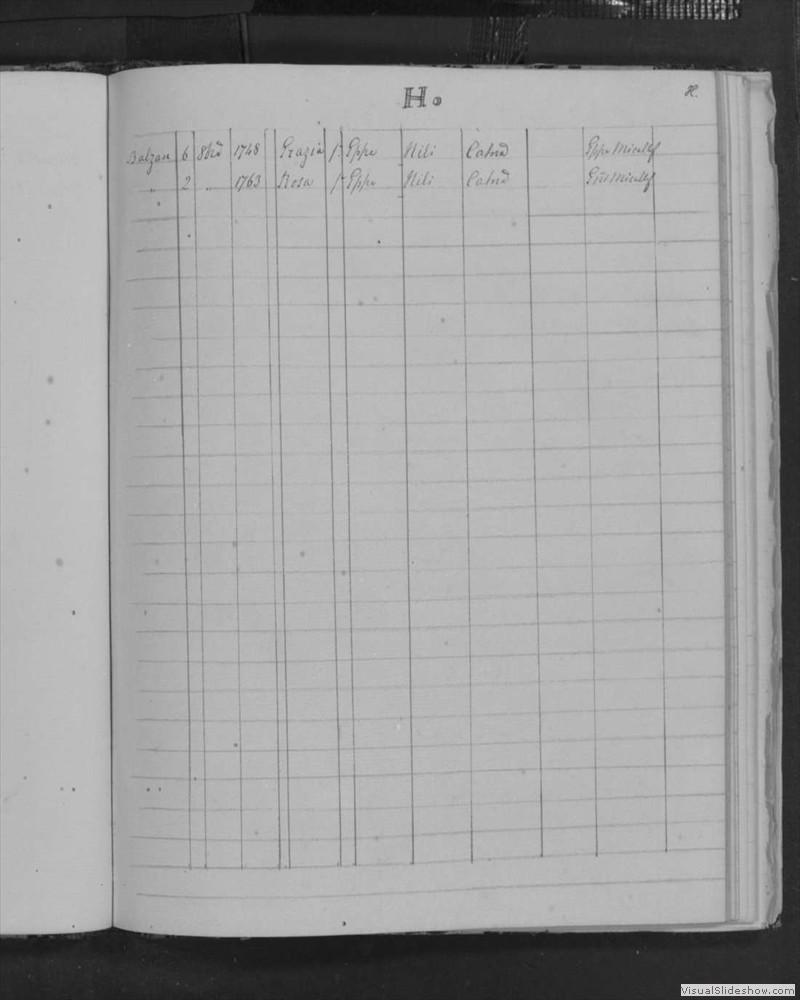 H.
H.
Balzan 6 8bre 1748 Grazia f Gppe Hili Catna Gppe Micallef
" 2 " 1763 Rosa f Gppe Hili Catna Micallef
VisualSlideshow.com